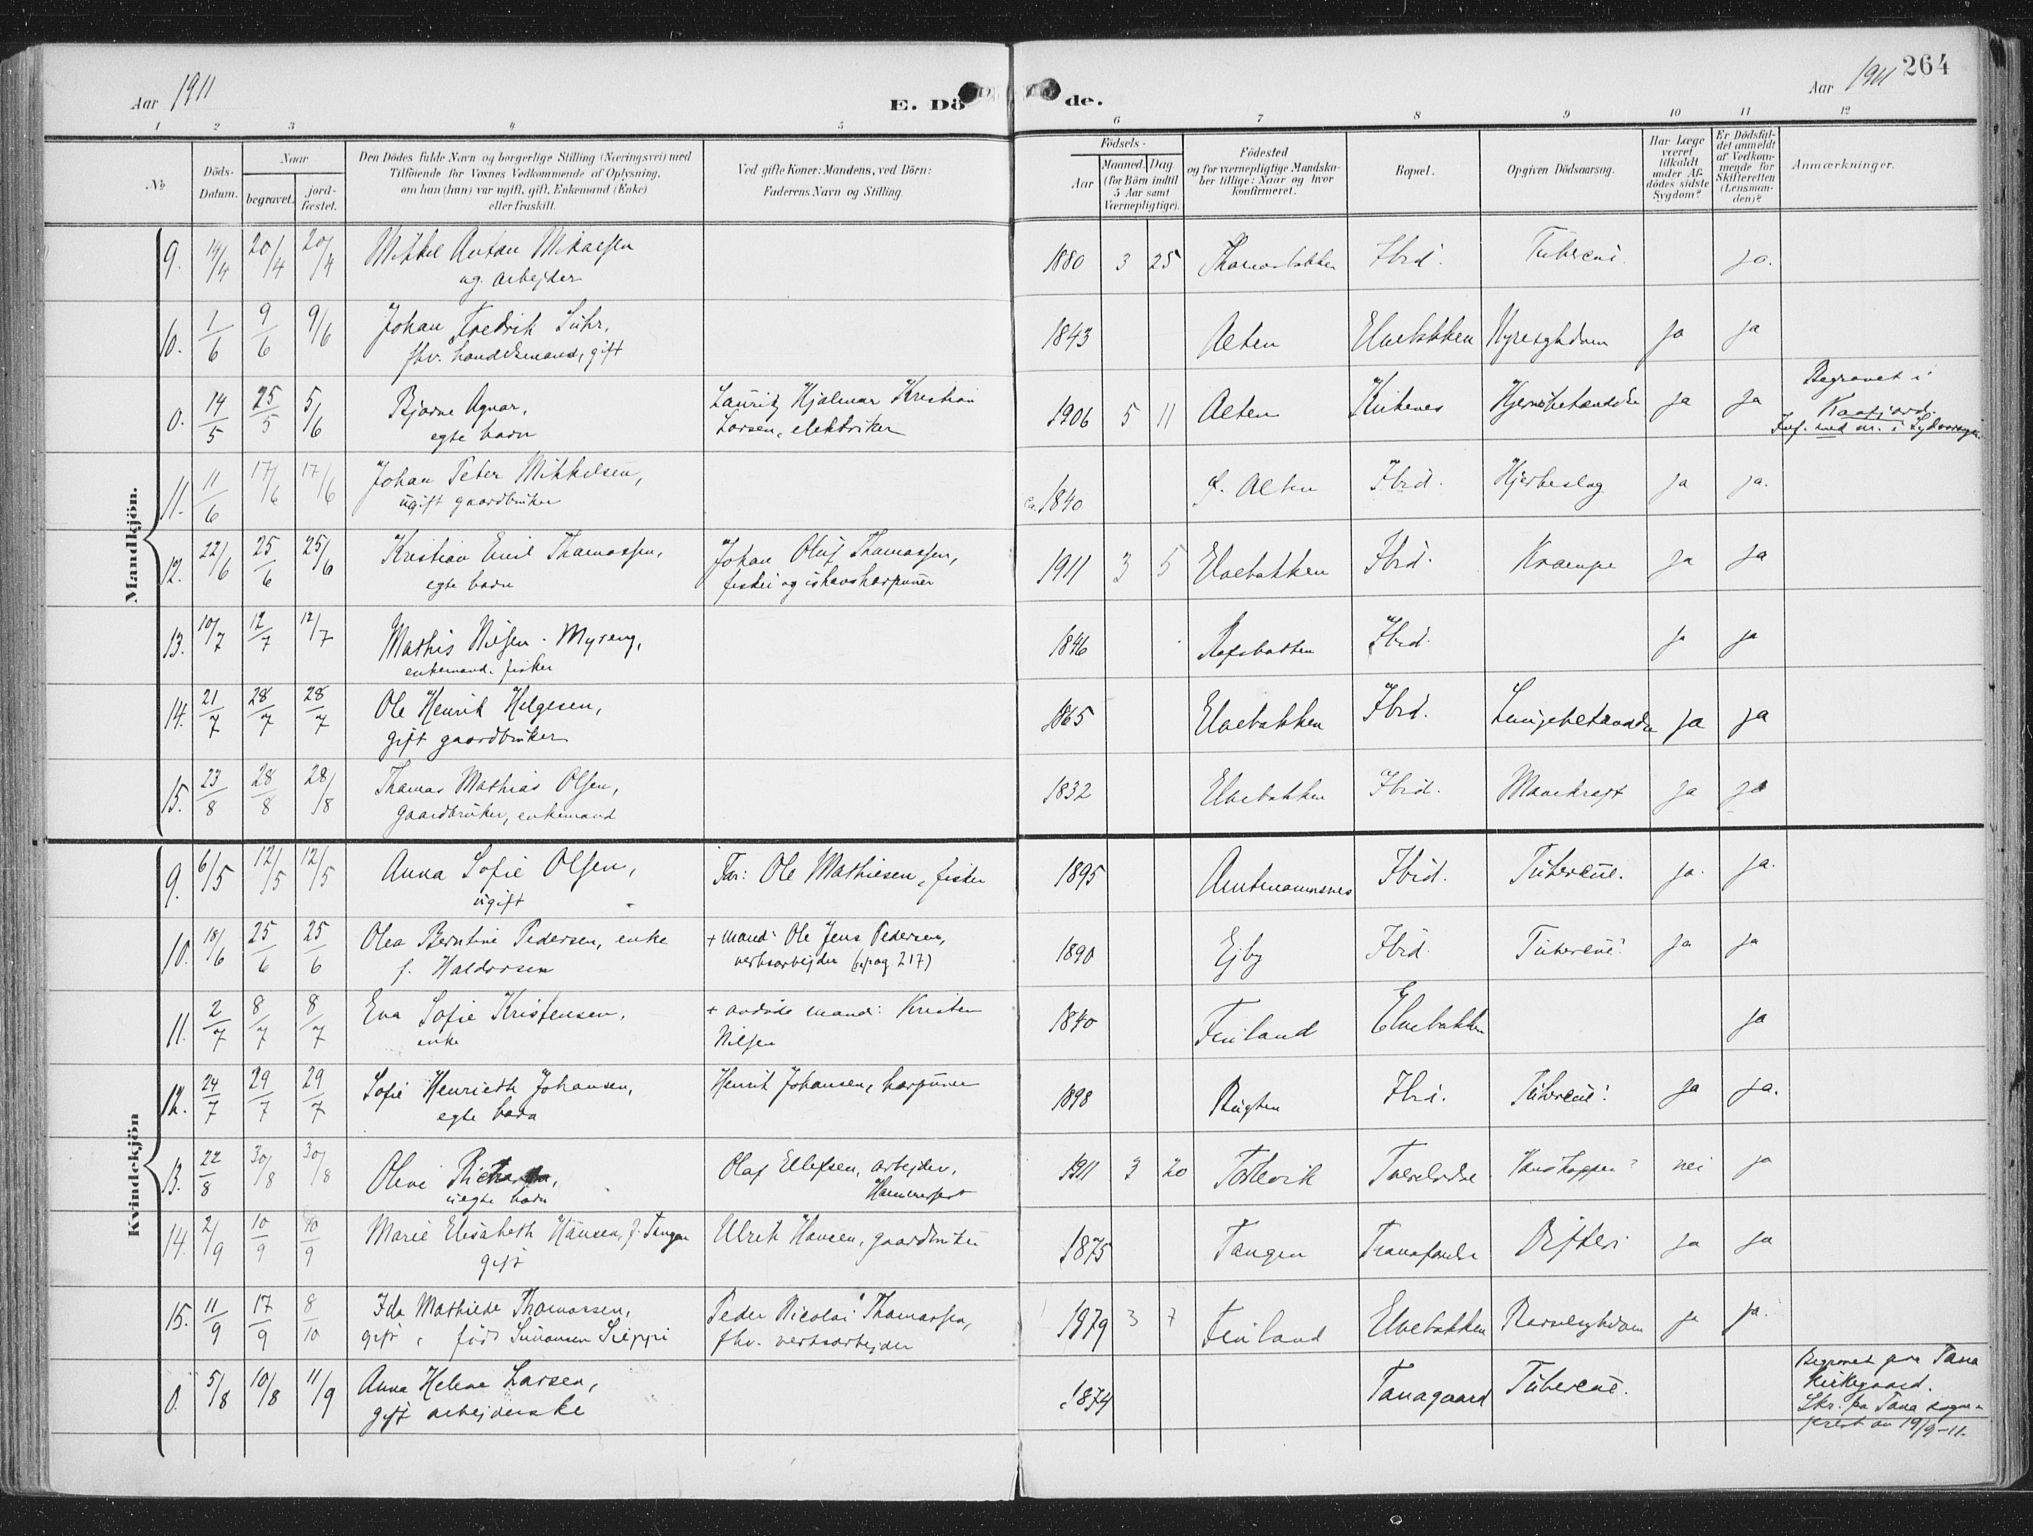 Aar 1911
E. Dö de.
Aar 1911 264
1 2 3 4 5 6 7 8 9 10 11 12
No
Döds-Datum.
Naar
begravet.
jord-fæstet.
Den Dödes fulde Navn og borgerlige Stilling (Næringsvei) med
Tilföiende for Voxnes Vedkommende af Oplysning,
om han (hun) var ugift, gift, Enkemand (Enke)
eller fraskilt.
Ved gifte Koner: Mandens, ved Börn:
Faderens Navn og Stilling.
Födsels-
Aar
Maaned. Dag
(for Börn indtil
5 Aar samt
Værnepligtige).
Födested
og for værnepligtige Mandska-
ber tillige: Naar og hvor
konfirmeret.
Bopæl.
Opgiven Dödsaarsag.
Har Læge
været
tilkaldt
under Af-
dödes sidste
Sygdom?
Er Dödsfal-
det anmeldt
af Vedkom-
mende for
Skifteretten
(Lensman-
den)?
Anmærkninger.
Mandkjön.
9. 14/4 20/4 20/4 Mikkel Anton Mikaelsen 1880 3 25 Ibid. Tuberkul. ja.
ug. arbejder
10. 1/6 9/6 9/6 Johan Fredrik Suhr, 1843 Alten Elvebakken Nyresygdom Ja ja
fhv. handelsmand, gift
0. 14/5 25/5 5/6 Bjarne Agnar, Lauritz Hjalmar Kristian 1906 5 11 Alten Kirkenes Hjernebetændelse Ja Ja Begravet i
egte barn Larsen, elektriker Kaafjord.
11. 11/6 17/6 17/6 Johan Peter Mikkelsen, ca. 1840 f. Alten Ibid. Hjerteslag ja ja.
ugift gaardbruker
12. 22/6 25/6 25/6 Kristian Emil Thomassen, Johan Oluf Thomassen, 1911 3 5 Elvebakken Ibid. Krampe ja ja
egte barn fisker og ishavsharpuner
13. 10/7 12/7 12/7 Mathis Nilsen - Myreng, 1846 Rafsbotten Ibid. ja ja
enkemand. fisker
14. 21/7 28/7 28/7 Ole Henrik Helgesen, 1865 Elvebakken Ibid. Lungebetændelse ja ja
gift gaardbruker
15. 23/8 28/8 28/8 Thomas Mathias Olsen, 1832 Elvebakken Ibid. Mavekræft ja ja
gaardbruker, enkemand
Kvindekjön
9. 6/5 12/5 12/5 Anna Sofie Olsen, Far: Ole Mathiesen, fisker 1895 Amtmannsnes Ibid. Tuberkul. ja. ja.
ugift
10. 18/6 25/6 25/6 Olea Berntine Pedersen, enke + mand: Ole Jens Pedersen, 1890 Ejby Ibid. Tuberkul. ja ja
f. Haldorsen verksarbejder (pag. 217)
11. 2/7 8/7 8/7 Eva Sofie Kristensen, + avdøde mand: Kristen 1840 Finland Elvebakken ja
enke Nilsen
12. 24/7 29/7 29/7 Sofie Henriette Johansen, Henrik Johansen, harpuner 1898 Bugten Ibid. Tuberkul. ja ja.
egte barn
13. 22/8 30/8 30/8 Olene Olaf Ellefsen, arbejder, 1911 3 20 Talvik nei ja
uegte barn Hammerfest
14. 2/9 10/9 10/9 Marie Elisabeth Hansen, f. Tangen Ulrik Hansen, gaardbruker 1875 Tangen Difteri ja ja
gift
15. 11/9 17/9 8/10 Ida Mathilde Thomassen, Peder Nicolai Thomassen, 1879 3 7 Finland Elvebakken Barselsygdom ja ja.
gift, født Simonsen Sieppi fhv. verksarbejder
0. 5/8 10/8 11/9 Anna Helene Larsen, c. 1874 Tanagaard Tuberkul. Begravet paa Tana
gift arbejderske Kirkegaard.
Skr. fra Tana sogne-
prest av 19/9-11.